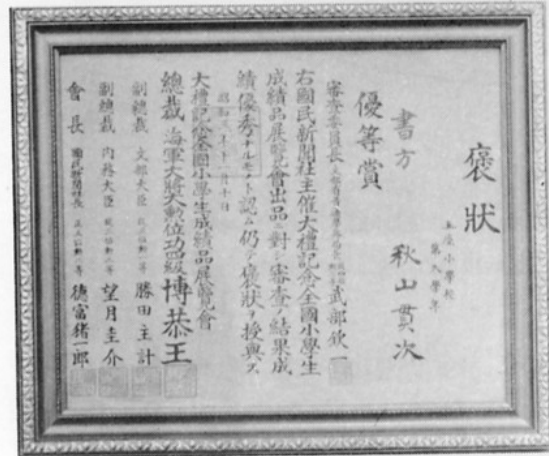 褒狀
小學校
第六學年
書方 秋山貫次
優等賞
審査委員長 武部欽一
右國民新聞社主催大禮記念全國小學生
成績品展覽會出品ニ對シ審査ノ結果成
績優秀ナルモノト認ム仍テ褒狀ヲ授與ス
昭和三年十一月十日
大禮記念全國小學生成績品展覽會
總裁 海軍大將大勳位功四級博恭王
副總裁 文部大臣 勝田主計
副總裁 内務大臣 望月圭介
會長 國民新聞社長 德富猪一郎